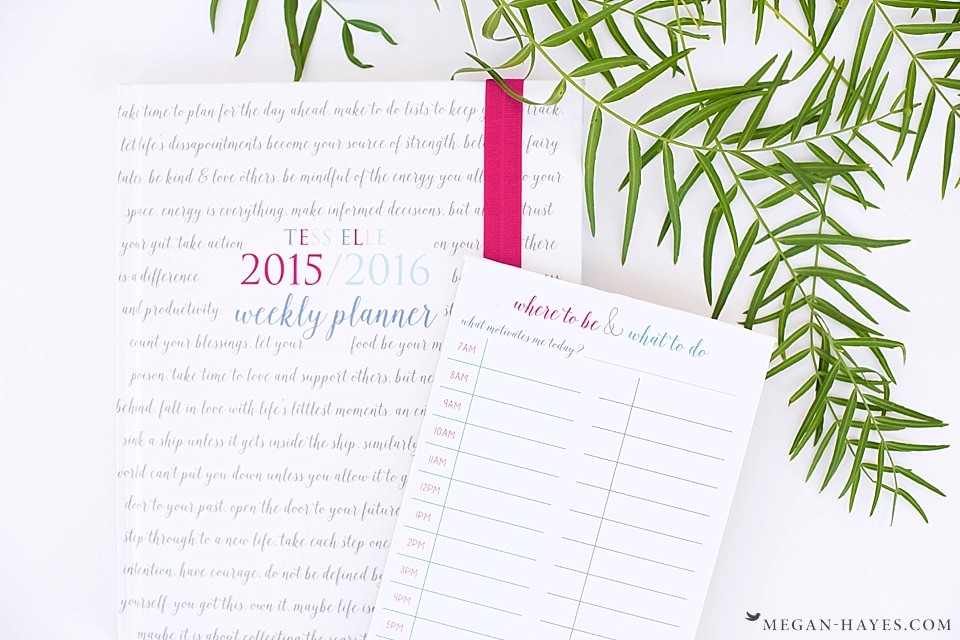 take time to plan for the day ahead. make to do lists to keep track.
let life's dissapointments become your source of strength. fairy
tales. be kind & love others. be mindful of the energy you to your
space. energy is everything. make informed decisions. but trust
your gut. take action on your there
is a difference
and productivity.
count your blessings. let your food be your
poison. take time to love and support others. but
behind. fall in love with life's littlest moments. an
sink a ship unless it gets inside the ship. similarly
world can't put you down unless you allow it to
door to your past. open the door to your future
step through to a new life. take each step one
intention. have courage. do not be defined
yourself. you got this. own it. maybe life is
maybe it is about collecting the
TESS ELLE
2015/2016
weekly planner
where to be & what to do
what motivates me today?
7AM
8AM
9AM
10AM
11AM
12PM
1PM
2PM
3PM
4PM
5PM
MEGAN-HAYES.COM